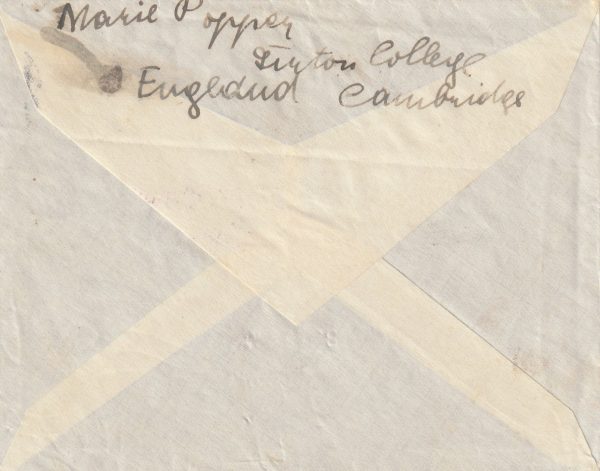 Marie Popper
Girton College
England Cambridge